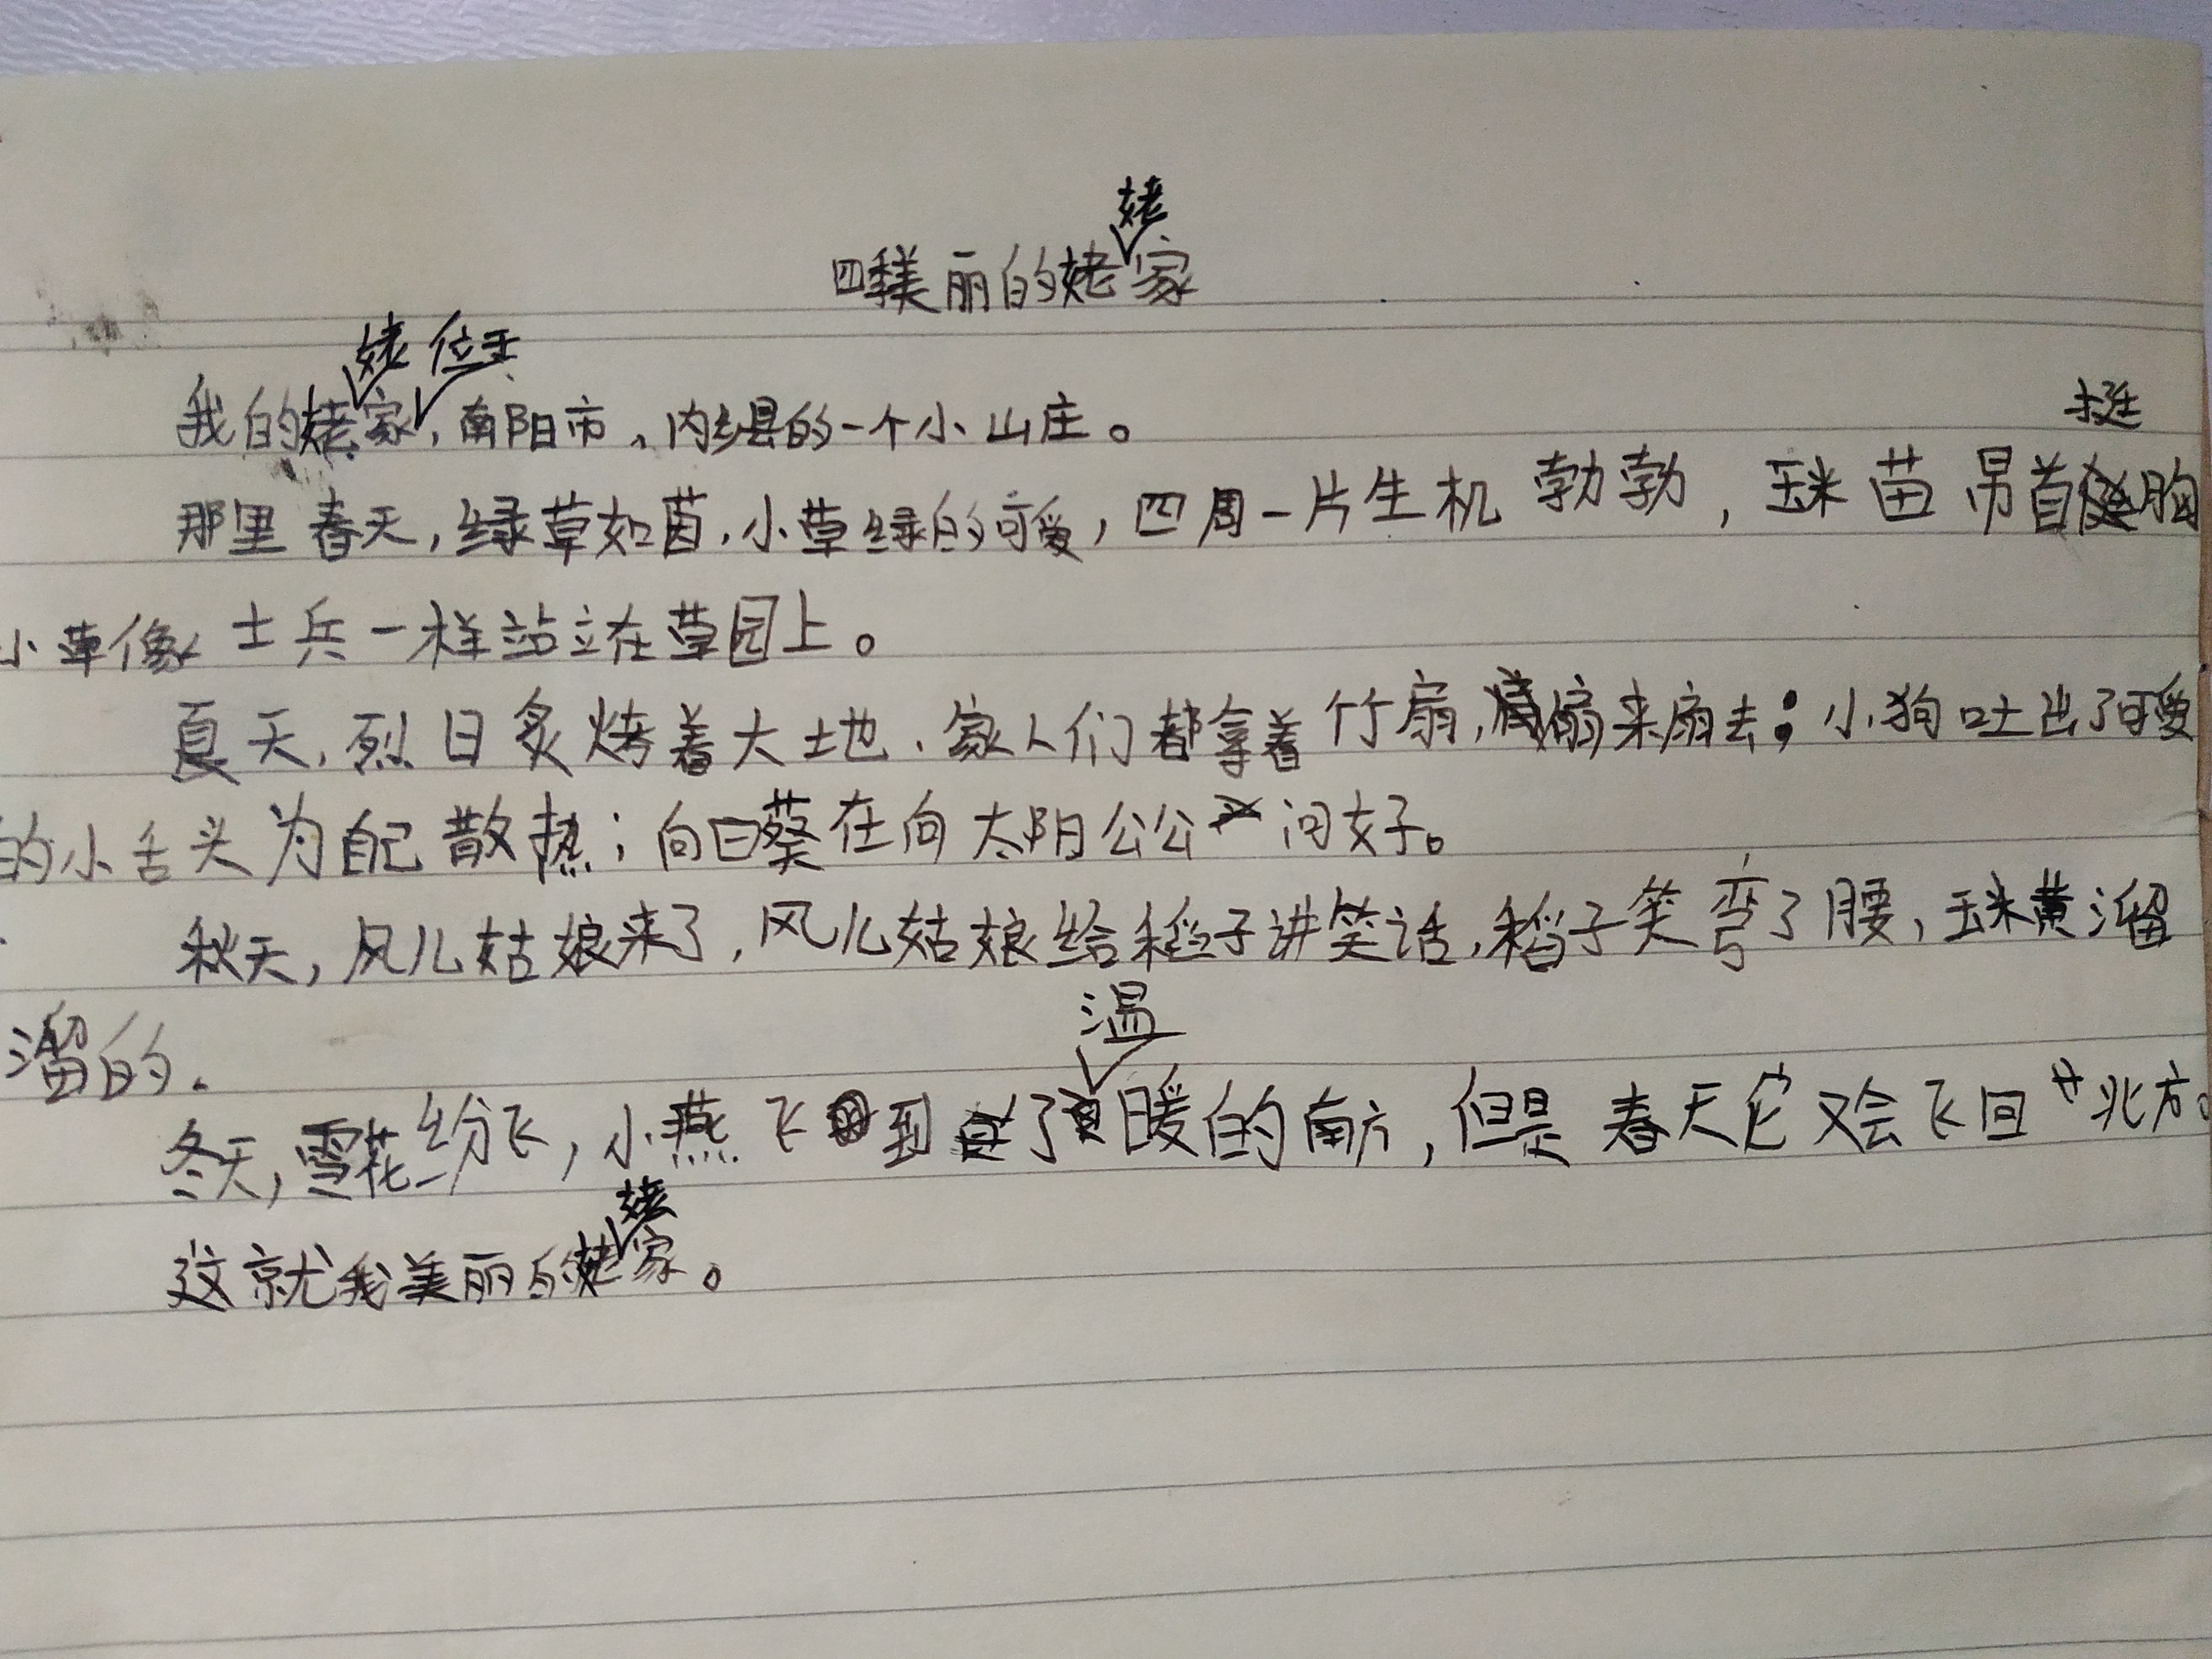 四季美丽的姥姥家
我的姥姥家,位于南阳市、内乡县的一个小山庄。
那里春天,绿草如茵,小草绿的可爱,四周一片生机勃勃,玉米苗昂首挺胸
小草像士兵一样站立在草园上。
夏天,烈日炙烤着大地、家人们都拿着竹扇,扇来扇去;小狗吐出了可爱
的小舌头为自己散热;向日葵在向太阳公公问好。
秋天,风儿姑娘来了,风儿姑娘给稻子讲笑话,稻子笑弯了腰,玉米黄溜
溜的.
冬天,雪花纷飞,小燕飞到了温暖的南方,但是春天它又会飞回北方。
这就我美丽的姥姥家。